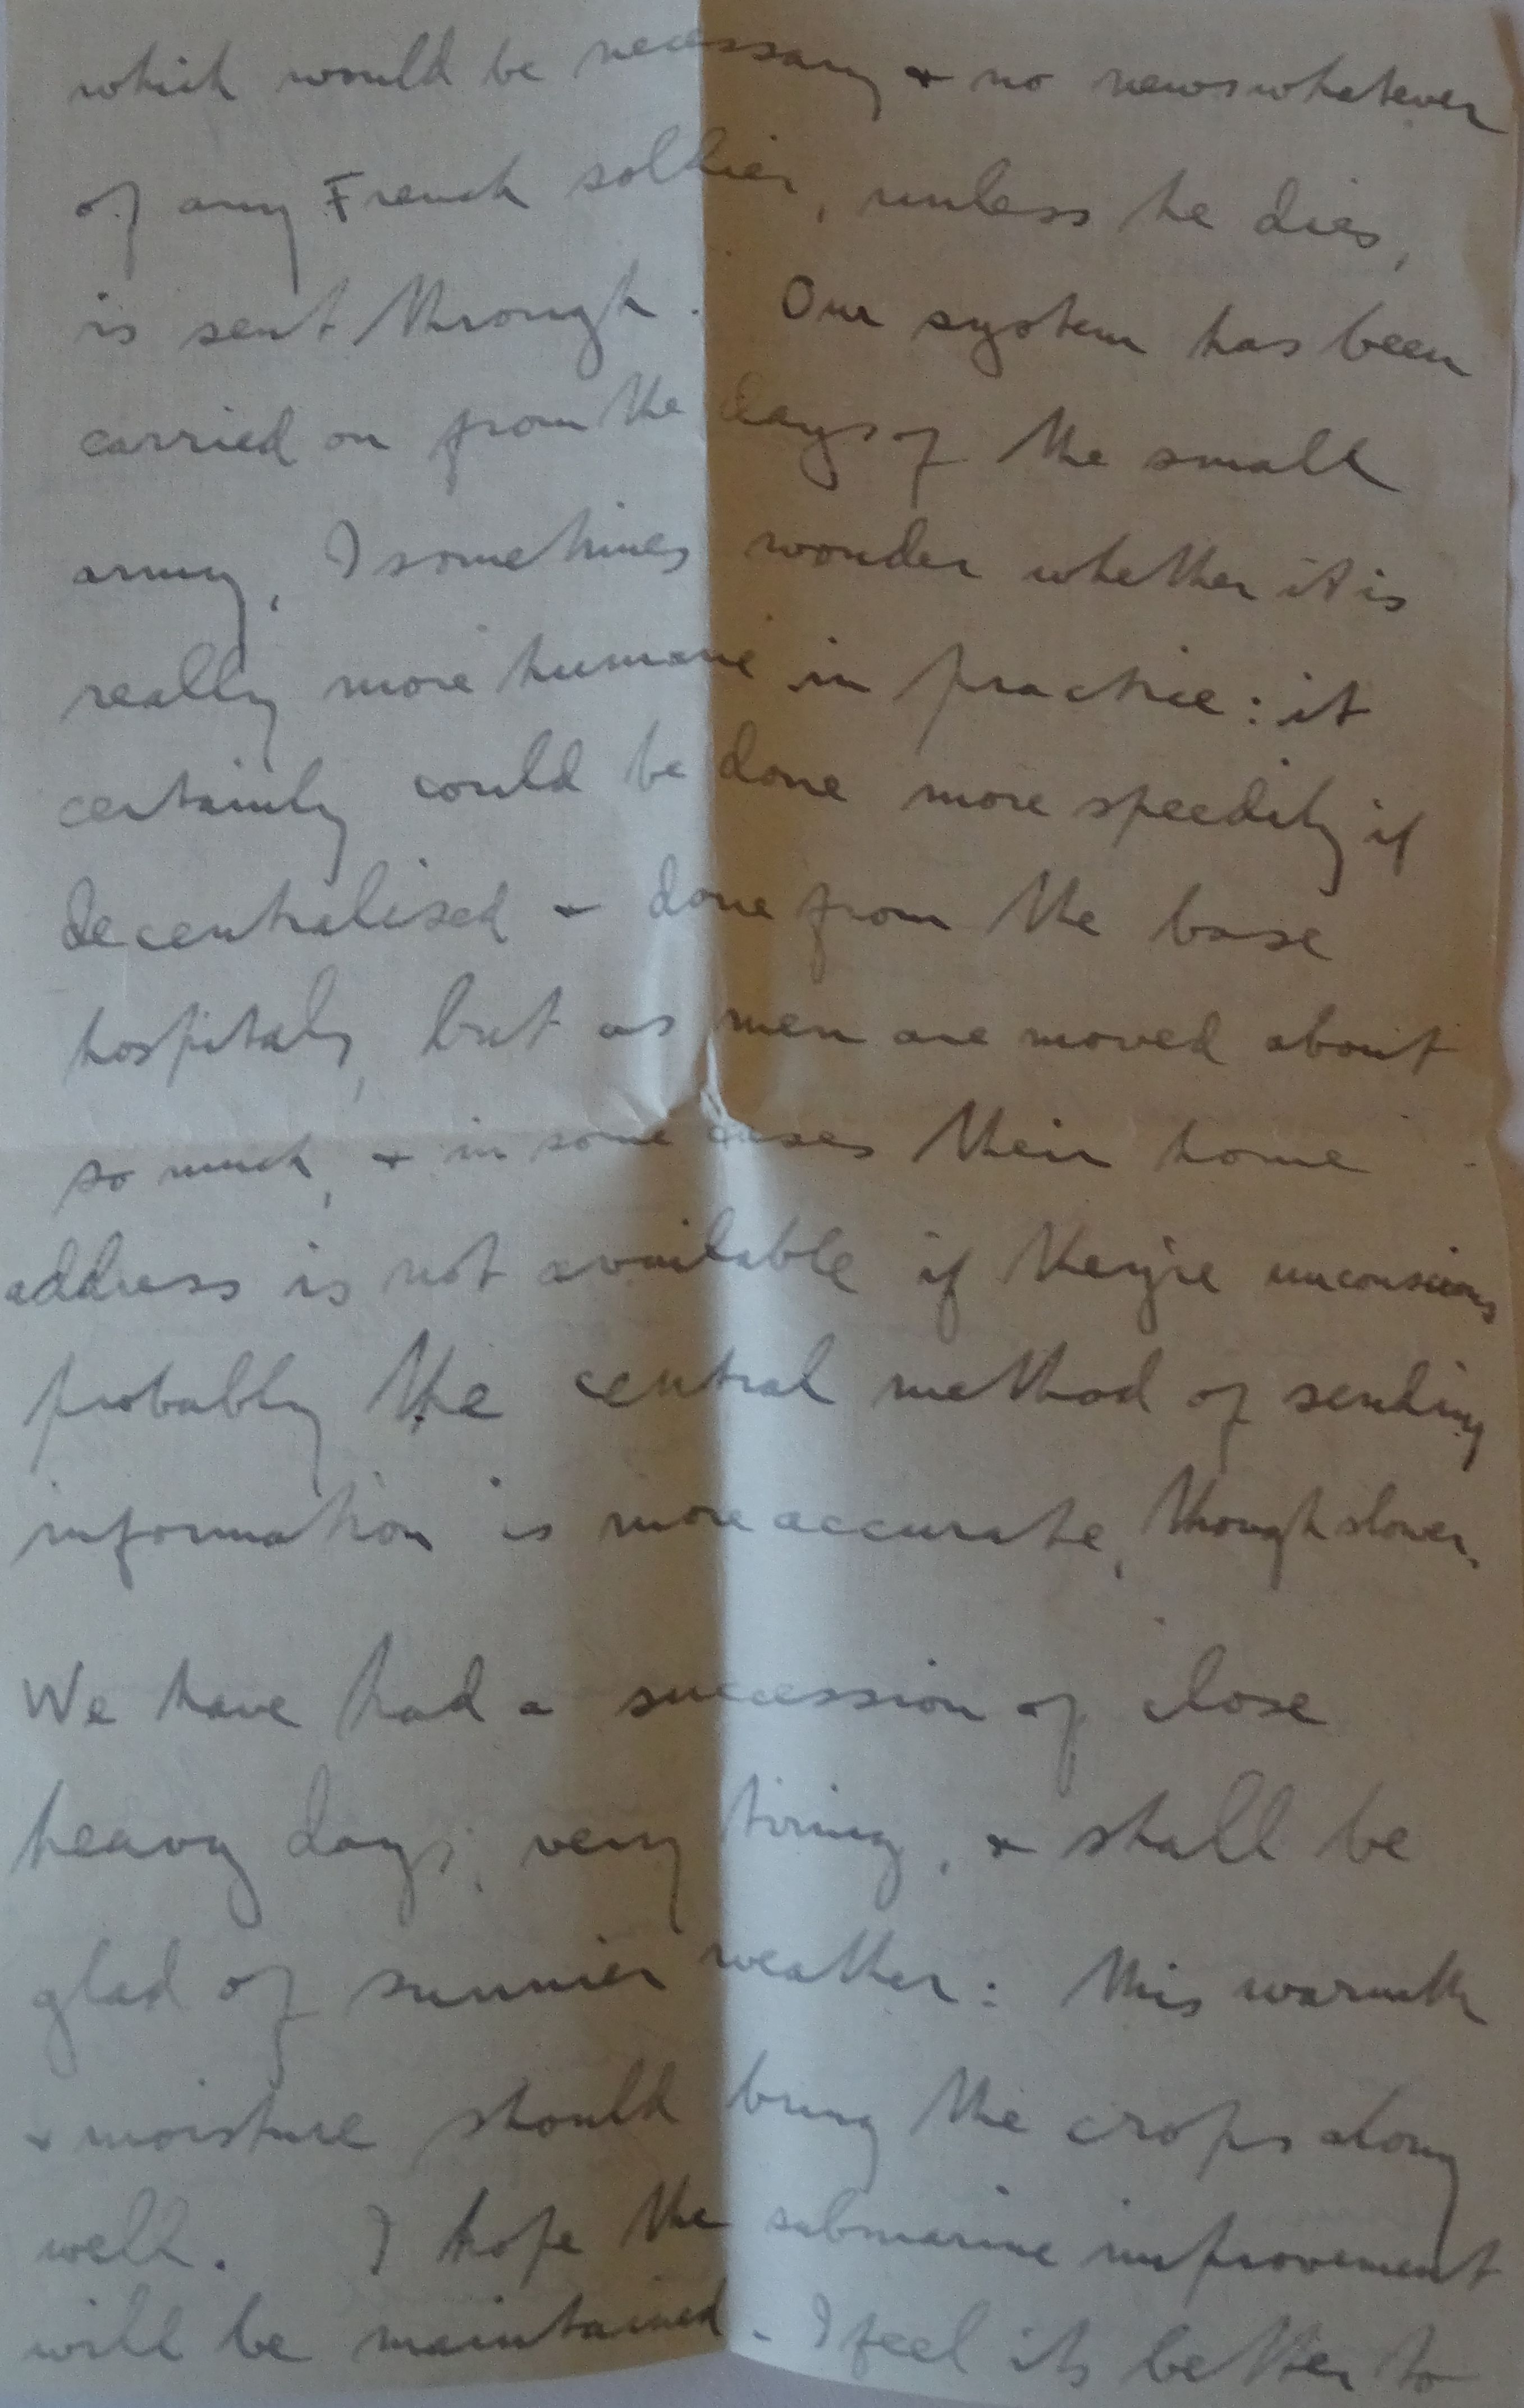 which would be necessary & no news whatever
of any French soldier, unless he dies,
is sent through. Our system has been
carried on from the days of the small
army, I sometimes wonder whether it is
really more humane in practice: it
certainly could be done more speedily if
decentralised & done from the base
hospitals, but as men are moved about
so much, & in some cases their home
address is not available if they're unconscious
probably the central method of sending
information is more accurate, though slower.
We have had a succession of close
heavy days, very tiring, & shall be
glad of sunnier weather: this warmth
& moisture should bring the crops along
well. I hope the submarine improvement
will be maintained. I feel its better to